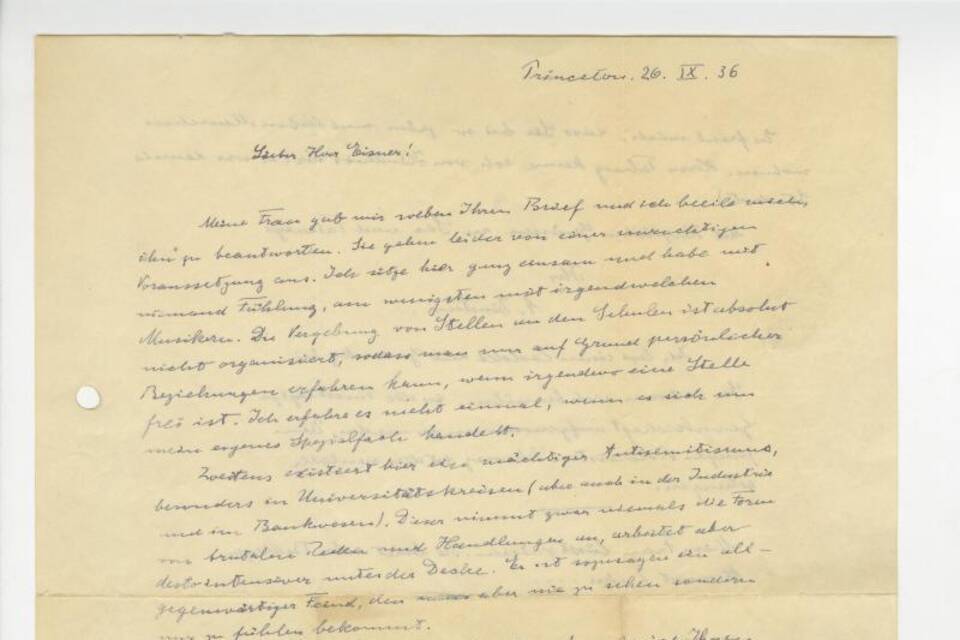 Princeton. 26. IX. 36
Lieber Herr Eisner!
Meine Frau gab mir soeben Ihren Brief und ich beeile mich,
ihn zu beantworten. Sie gehen leider von einer unrichtigen
Voraussetzung aus. Ich sitze hier ganz einsam und habe mit
niemand Fühlung, am wenigsten mit irgendwelchen
Musikern. Die Vergebung von Stellen an den Schulen ist absolut
nicht organisiert, sodass man nur auf Grund persönlicher
Beziehungen erfahren kann, wenn irgendwo eine Stelle
frei ist. Ich erfahre es nicht einmal, wenn es sich um
mein eigenes Spezialfach handelt.
Zweitens existiert hier ein mächtiger Antisemitismus,
besonders in Universitätskreisen (aber auch in der Industrie
und im Bankwesen). Dieser nimmt zwar niemals die Form
von brutalen Reden und Handlungen an, arbeitet aber
desto intensiver unter der Decke. Er ist sozusagen ein all-
gegenwärtiger Feind, den aber nie zu sehen sondern
nur zu fühlen bekommt.